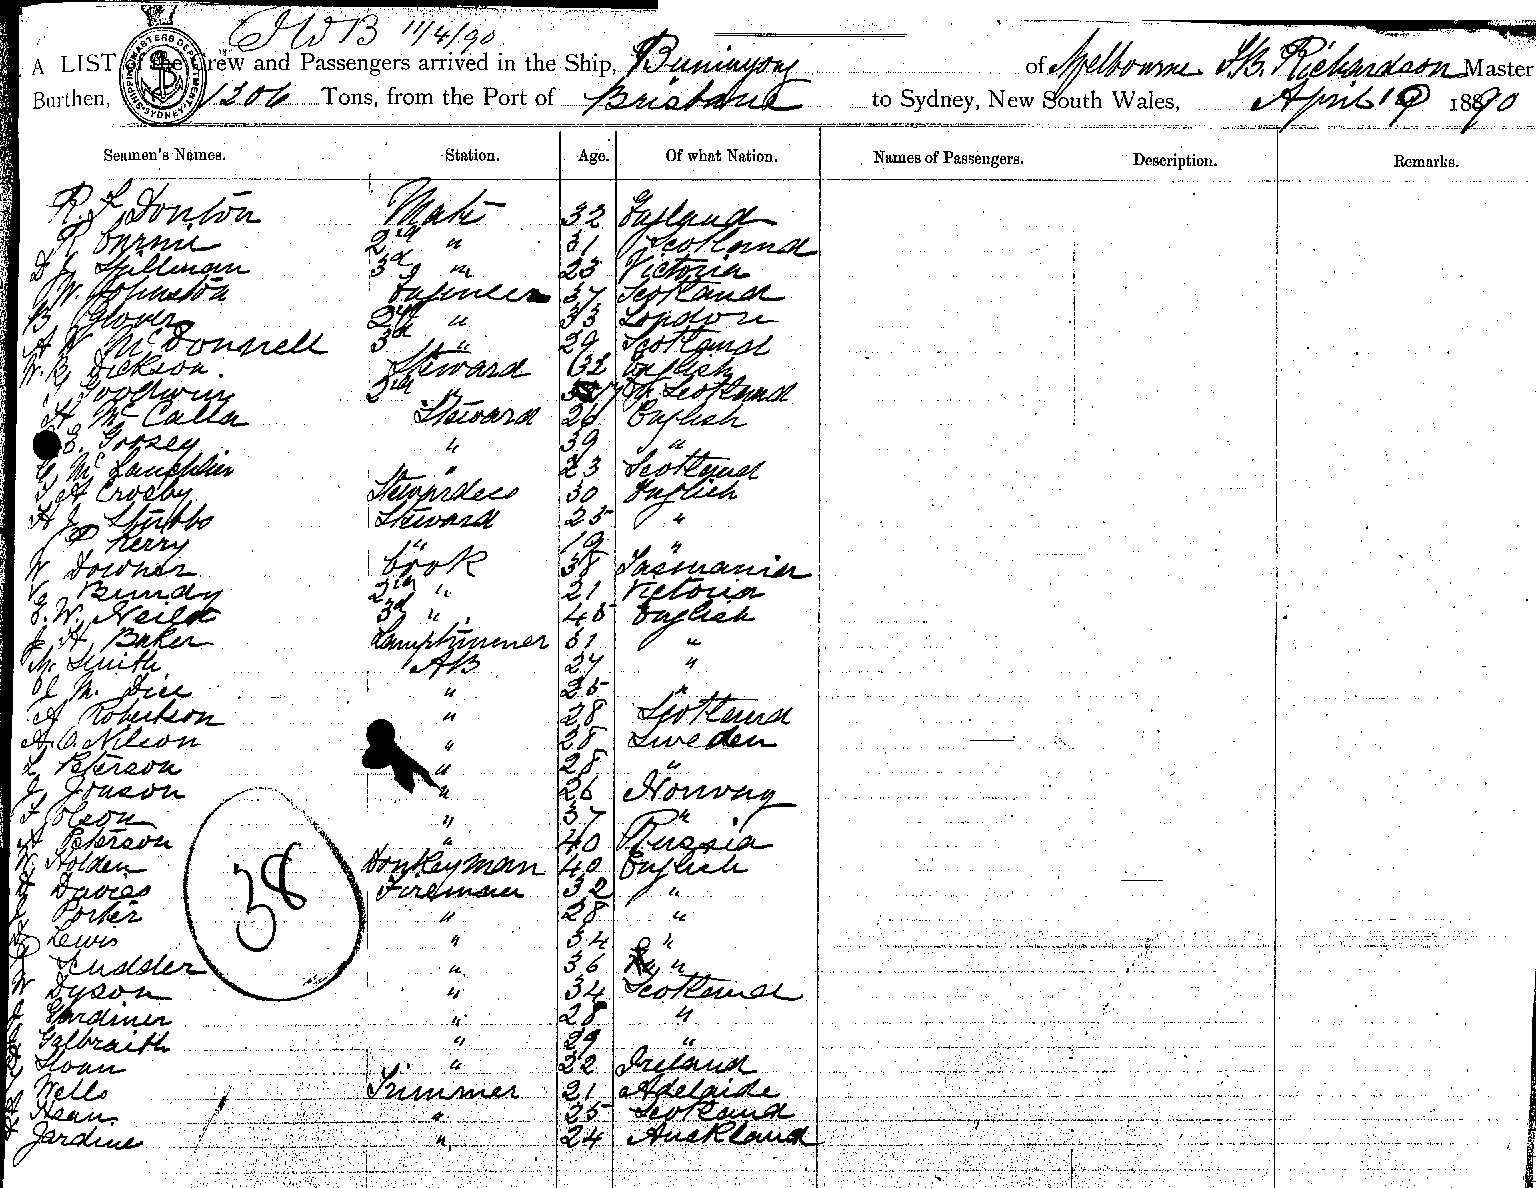 JWB 11/4/90
A LIST of the Crew and Passengers arrived in the Ship, Buninyong of Melbourne J.B. Richardson Master
Burthen, 1206 Tons, from the Port of Brisbane to Sydney, New South Wales, April 10 1890
SHIPPING MASTERS DEPARTMENT SYDNEY
Seamen's Names. Station. Age. Of what Nation. Names of Passengers. Description. Remarks.
R. L Donton Mate 32 England
R 2nd " 31 Scotland
D J Spillman 3d " 23 Victoria
W. Johnston Engineer 37 Scotland
B Glover 2nd " 33 London
A W McDonnell 3d " 29 Scotland
W. B. Dickson. Steward 32 English
Goodwin 2nd Scotland
H McCalla Steward 26 English
E. Goosey " 39 "
C McLaughlin " 23 Scotland
T A Crosby Stewardess 30 English
H J Stubbs Steward 25 "
P Kerry " 19 "
W Downer Cook 38 Tasmania
C Bundy 2nd " 21 Victoria
E. W. Neild 3d " 45 English
J H Baker Lamptrimmer 51 "
W. Smith AB 27 "
J M. Dice " 25 "
A Robertson " 28 Scotland
A. O. Nilson " 28 Sweden
L Peterson " 28 "
J Jonson " 26 Norway
F Olson " 37 "
A Peterson " 40 Russia
W Holden Donkeyman 40 English
H Davies Fireman 32 "
J Porter " 28 "
Lewis " 34 "
J Scudder " 36 "
W Dyson " 34 Scotland
J Gardiner " 28 "
Galbraith " 29 "
Sloan " 22 Ireland
Wells Trimmer 21 Adelaide
Hean " 25 Scotland
Jardine " 24 Auckland
38